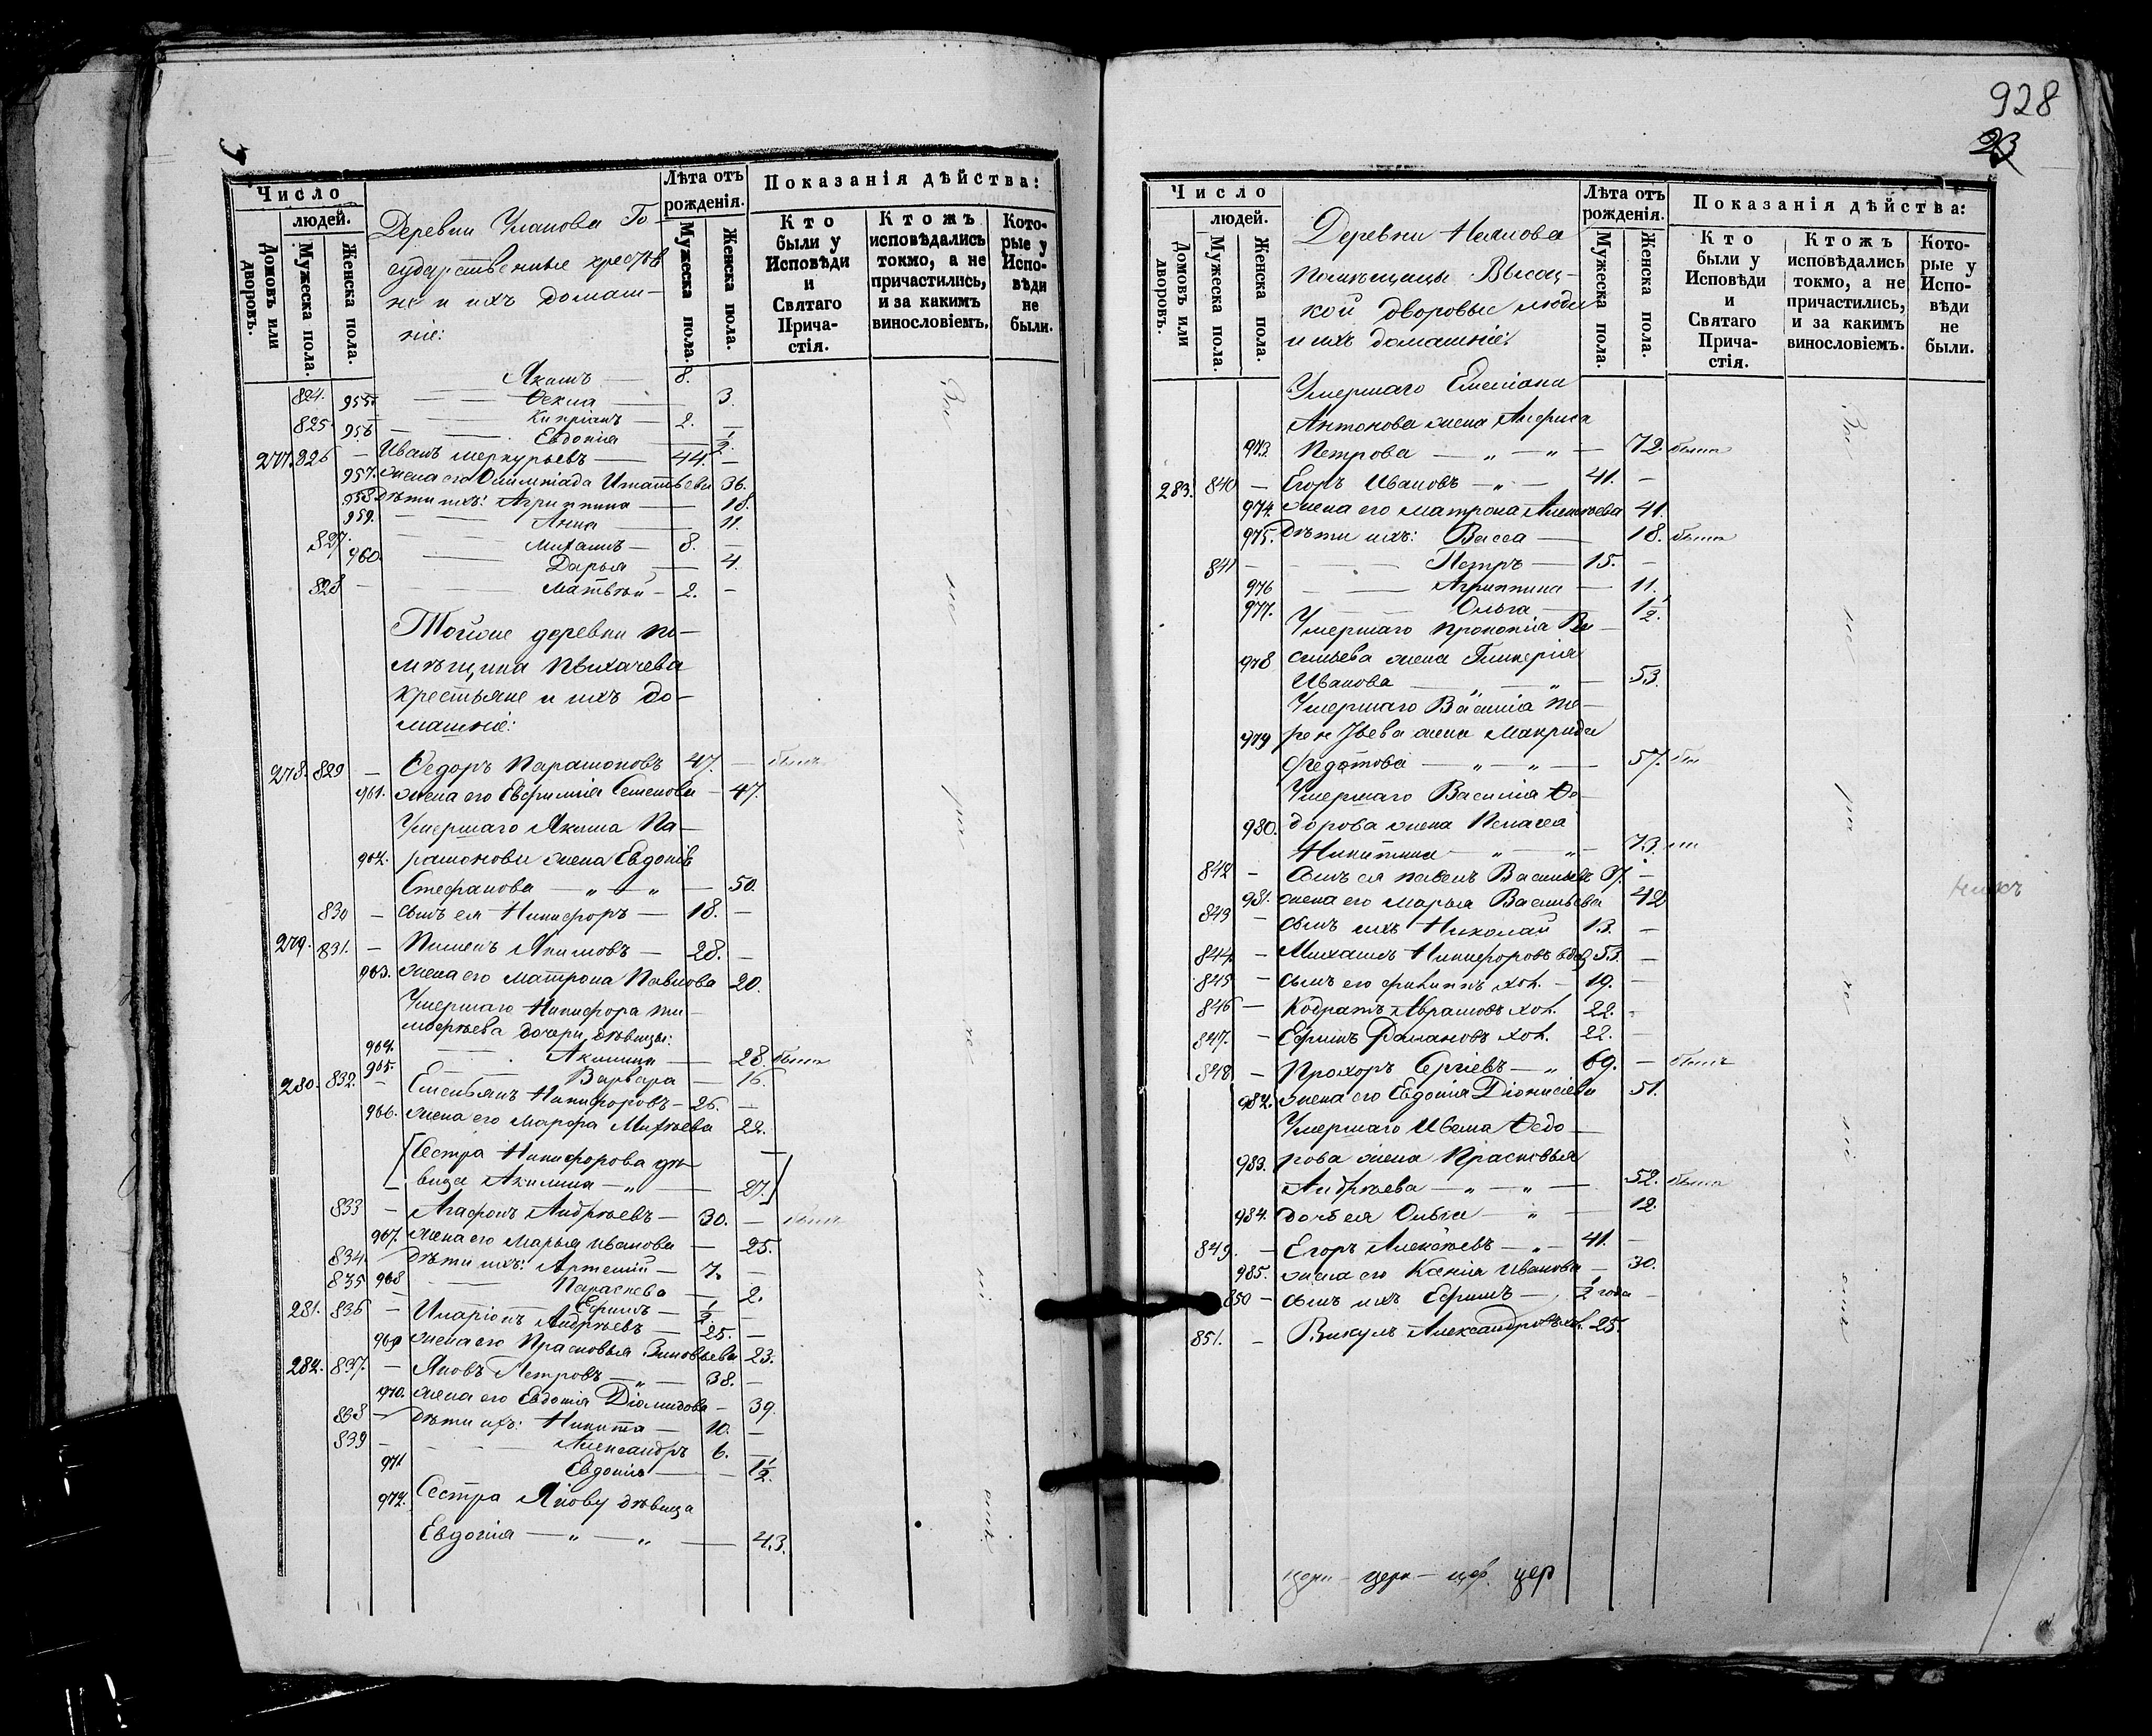 Число
людей.
Домовъ или дворовъ.
Мужеска пола.
Женска пола.
Деревни Уланова Го-
сударственные крестья-
не и ихъ домаш-
ніе:
Лѣта отъ рожденія.
Мужеска пола.
Женска пола.
Показанія дѣйства:
Кто были у Исповѣди и Святаго Прича-стія.
Ктожъ исповѣдались токмо, а не причастились, и за какимъ винословіемъ.
Кото-рые у Испо-вѣди не были.
824. — Якимъ — 8.
955. — Ѳекла — 3.
825. — Кипріанъ — 2. —
956 — Евдокія — 1/2.
277. 826 — Иванъ Меркурьевъ — 44. —
957. жена его Олимпіада Игнатьева 36.
958. дѣти ихъ: Агриппина — 18.
959. — Анна — 11.
827. — Михаилъ — 8. —
960. — Дарья — 4.
828 — Матвѣй — 2. —
Тойже деревни по-
мѣщика Пыхачева
крестьяне и ихъ до-
машніе:
278. 829 — Ѳедоръ Парамоновъ 47. — былъ
961. жена его Евфимія Семенова — 47.
Умершаго Якима Па-
962. рамонова жена Евдокія
Стефанова — „ — „ — 50.
830 — сынъ ея Никифоръ — 18. —
279. 831. — Пименъ Якимовъ — 28. —
963. жена его Матрона Павлова 20.
Умершаго Никифора Ти-
мофѣева дочери дѣвицы:
964. — Акилина — 28. была
965. — Варвара — 16.
280. 832. — Емельянъ Никифоровъ — 26. —
966. жена его Марфа Михѣева 22.
[Сестра Никифорова дѣ- —
вица Акилина — „ — 27.]
833 — Агафонъ Андрѣевъ — 30. — былъ
967. жена его Марья Иванова — 25.
834. дѣти ихъ: Артемій — 7. —
835 968 — Параскева — 2.
— Ефимъ — 1/2 —
281. 836 — Иларіонъ Андрѣевъ — 25. —
969 жена его Прасковья Зиновьева 23.
282. 837. — Яковъ Петровъ — „ — 38. —
970. жена его Евдокія Діомидова — 39.
838 — дѣти ихъ: Никита — 10. —
839 — Александръ 6. —
971 Евдокія — 1 1/2.
972. Сестра Якову дѣвица
Евдокія — „ — „ — 43.
928
23
Число
людей.
Домовъ или дворовъ.
Мужеска пола.
Женска пола.
Деревни
помѣщицы Высоц-
кой дворовые люди
и ихъ домашніе:
Лѣта отъ рожденія.
Мужеска пола.
Женска пола.
Показанія дѣйства:
Кто были у Исповѣди и Святаго Прича-стія.
Ктожъ исповѣдались токмо, а не причастились, и за какимъ винословіемъ.
Кото-рые у Испо-вѣди не были.
Умершаго Емеліана
Антонова жена Анфиса
973. Петрова — „ — „ — 72. была
283. 840 — Егоръ Ивановъ — „ — 41. —
974. жена его Матрона Алексѣева 41.
975. дѣти ихъ: Васса — 18. была
841 — — Петръ — 15. —
976 — Агриппина — 11.
977. — Ольга — 1 1/2.
Умершаго Прокопія Ва-
978 сильева жена Гликерія
Иванова — „ — „ — 53.
Умершаго Василія Те-
979 рентьева жена Макрида
Федотова — „ — „ — 57.
Умершаго Василія Ѳе-
980. дорова жена Пелагея
Никитина — „ — „ — 73.
842 — сынъ ея Павелъ Васильевъ 37. —
981. жена его Марья Васильева 42
843 — сынъ ихъ Николай 13. —
844 — Михаилъ Никифоровъ вдов 53. —
845 — сынъ его Филиппъ хол. — 19. —
846 — Кодратъ Абрамовъ хол. 22. -
847. — Ефимъ Романовъ хол. 22. —
848 — Прохоръ Сергіевъ — „ 69. — былъ
982. жена его Евдокія Діонисіева 51.
Умершаго Ивана Ѳедо-
983. рова жена Прасковья
Андрѣева — „ — „ — 52. была
984. дочь ея Ольга — „ — 12.
849. — Егоръ Алексѣевъ — „ — 41. —
985. жена его Ксенія Иванова — 30.
850 — сынъ ихъ Ефимъ — 1/2 года —
851. — Викулъ Александровъ хол. 25.